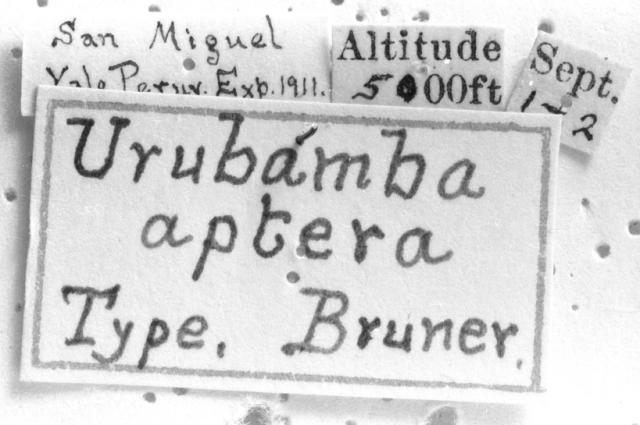 San Miguel
Yale Peruv. Exp. 1911.
Altitude
5000ft
Sept.
1-2
Urubámba
aptera
Type. Bruner.